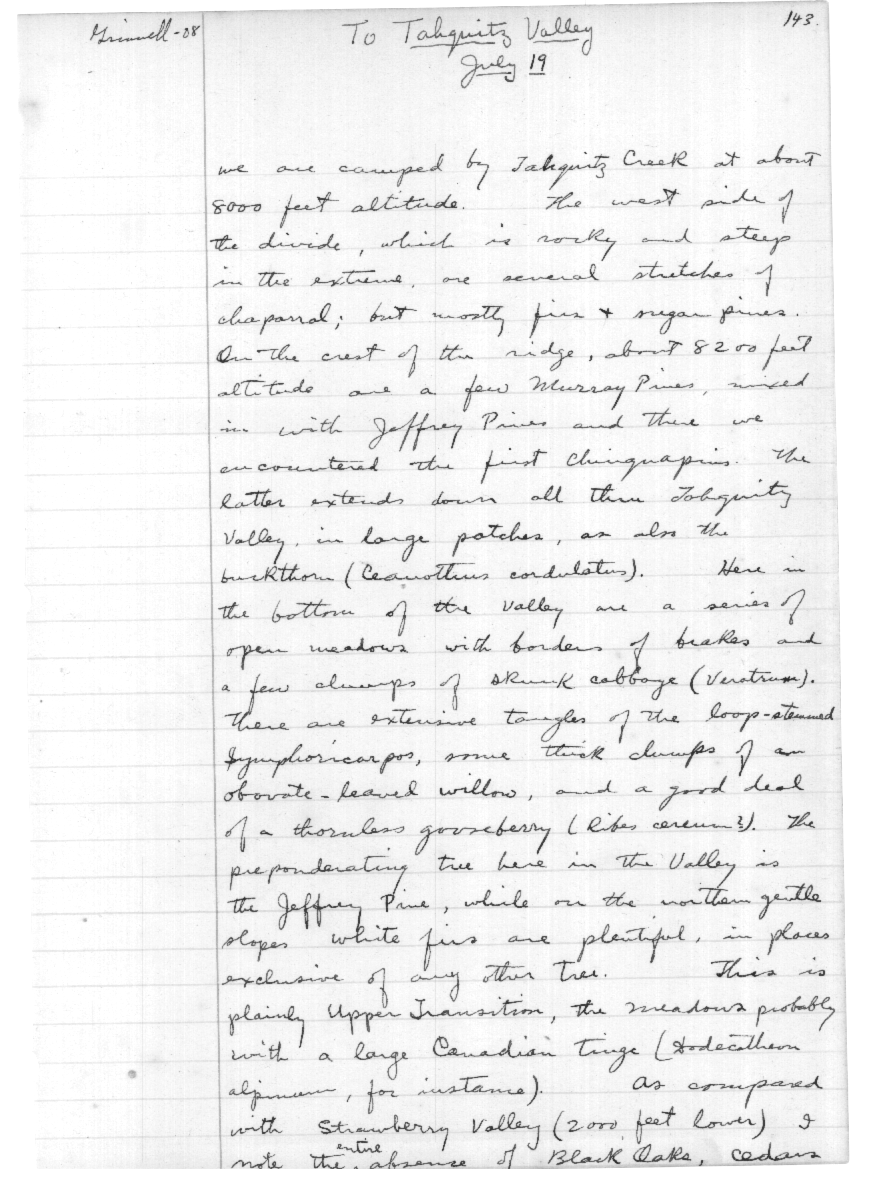 Grinnell-08
To Tahquitz Valley
143.
July 19
we are camped by Tahquitz Creek at about
8000 feet altitude. The west side of
the divide, which is rocky and steep
in the extreme, are several stretches of
chaparral; but mostly firs + sugar pines.
On the crest of the ridge, about 8200 feet
altitude are a few Murray Pines, mixed
in with Jeffrey Pines and there we
encountered the first chinquapins. The
latter extends down all thru Tahquitz
Valley, in large patches, as also the
buckthorn (Ceanothus cordulatus). Here in
the bottom of the valley are a series of
open meadows with borders of brakes and
a few clumps of skunk cabbage (Veratrum).
There are extensive tangles of the loop-stemmed
Symphoricarpos, some thick clumps of an
obovate-leaved willow, and a good deal
of a thornless gooseberry (Ribes cereum?). The
preponderating tree here in the Valley is
the Jeffrey Pine, while on the northern gentle
slopes white firs are plentiful, in places
exclusive of any other tree. This is
plainly Upper Transition, the meadows probably
with a large Canadian tinge (Dodecatheon
alpinum, for instance). As compared
with Strawberry Valley (2000 feet lower) I
note the entire absence of Black Oaks, cedars